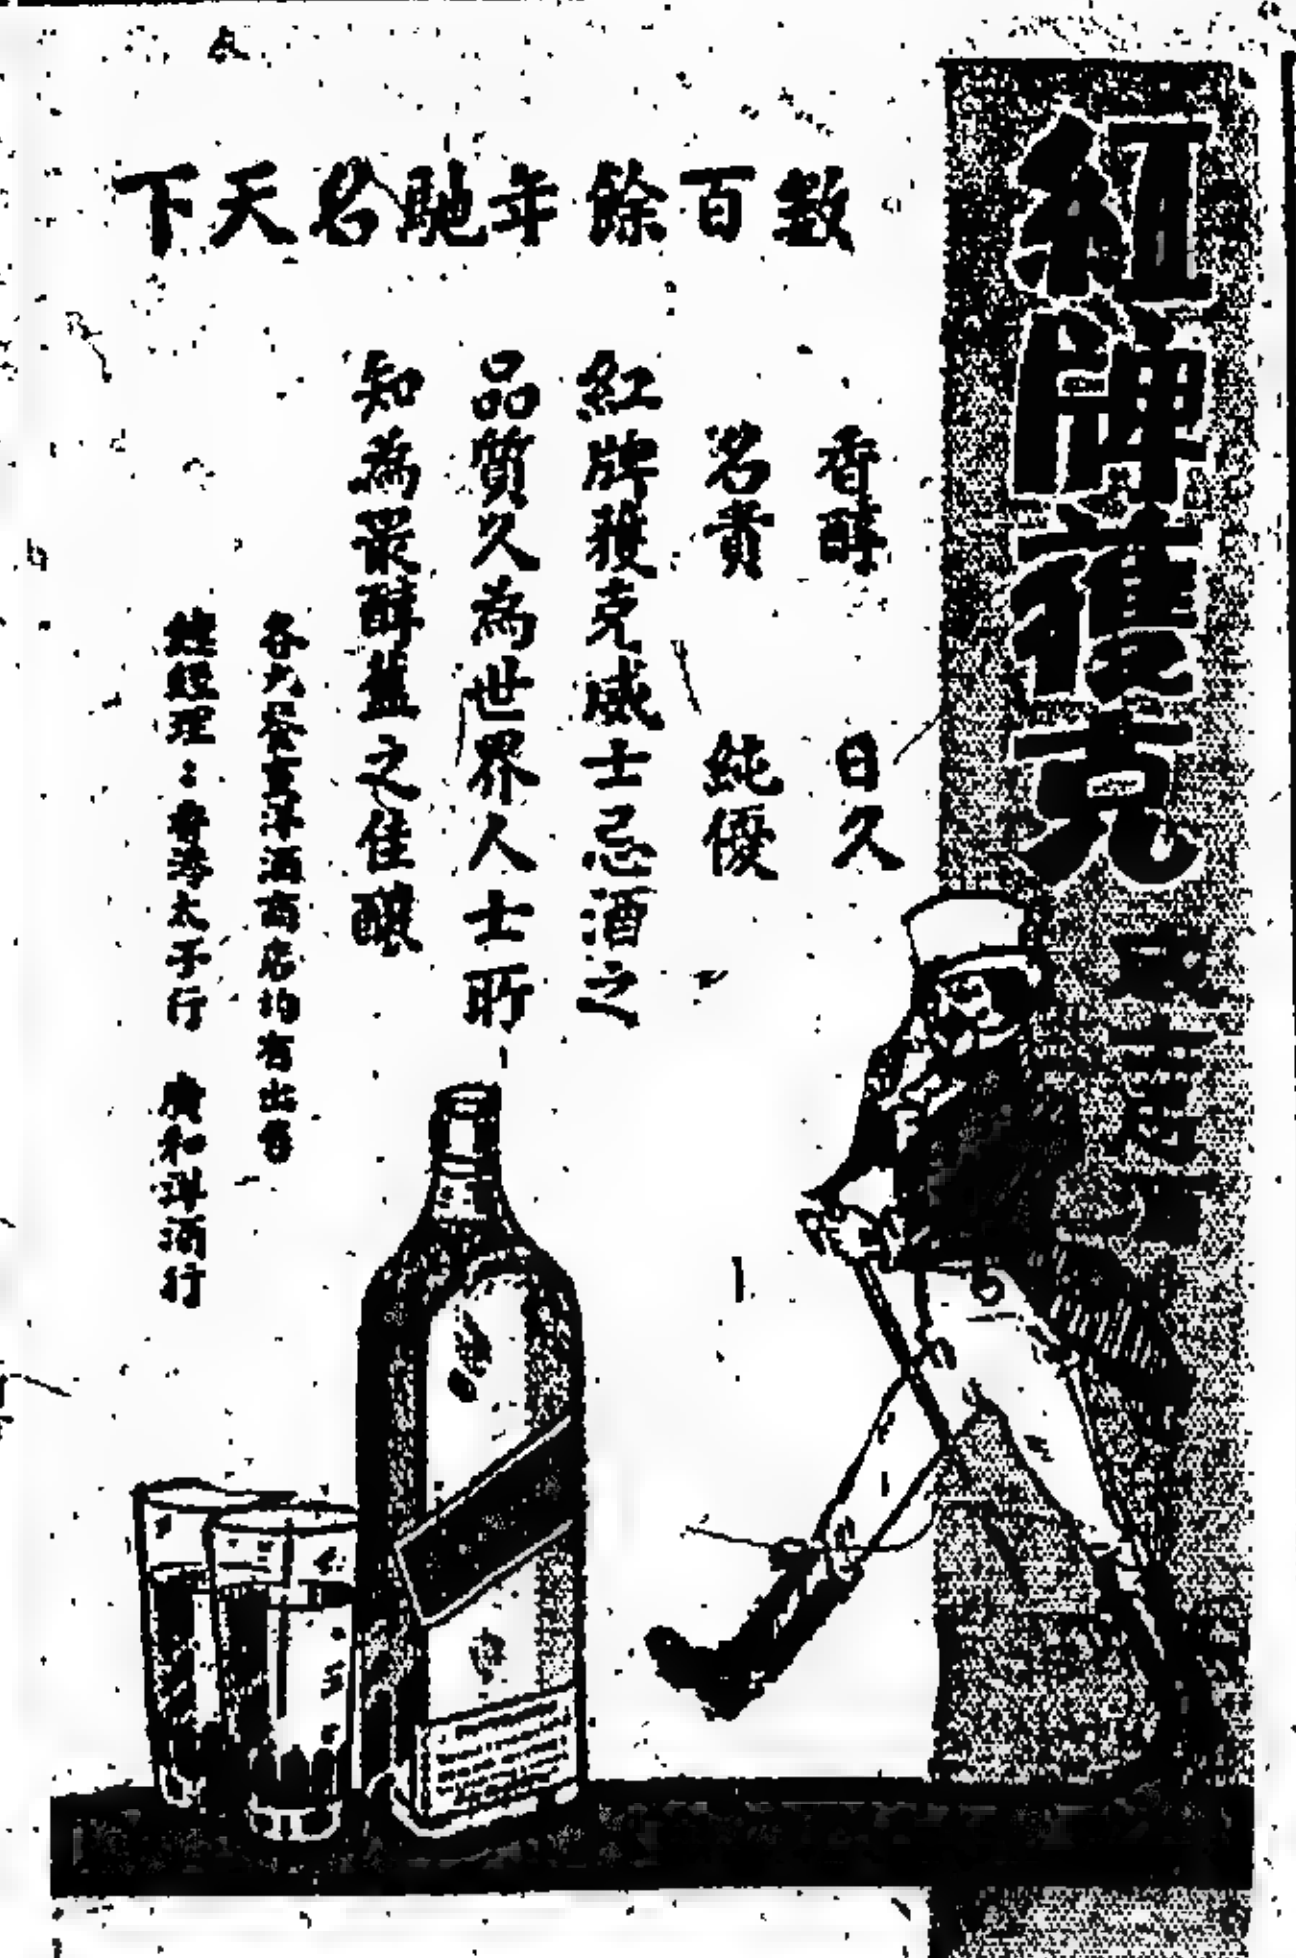 紅牌獲克
威士忌
數百餘年馳名天下
香醇 日久
名貴 純優
紅牌獲克威士忌酒之
品質久為世界人士所
知為最醇藎之佳釀
各大餐室洋酒商店均有出售
總經理：香港太子行 廣和洋酒行